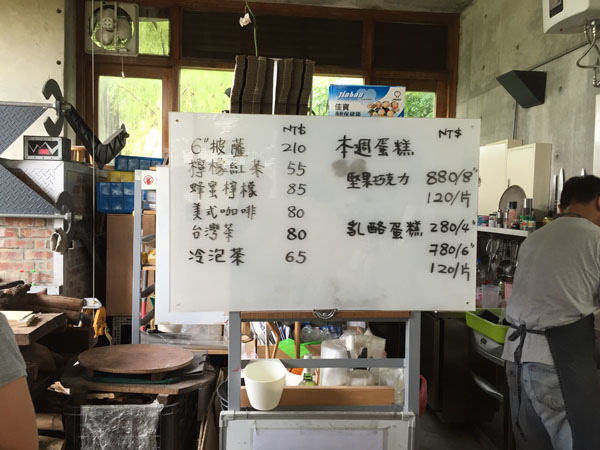 NT$
6" 披薩 210
檸檬紅茶 55
蜂蜜檸檬 85
美式咖啡 80
台灣茶 80
冷泡茶 65
NT$
本週蛋糕
堅果巧克力 880/8"
120/片
乳酪蛋糕 280/4"
780/6"
120/片
佳寶